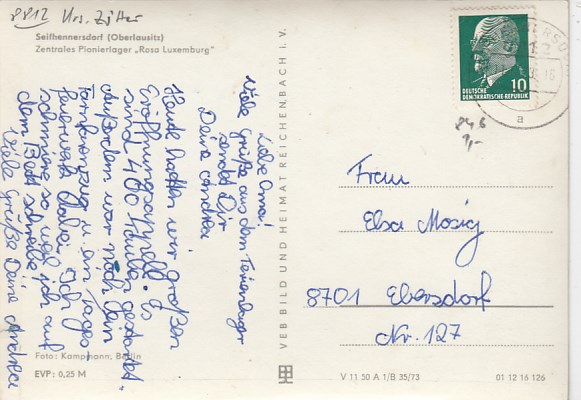 8812 Krs. Zittau
Seifhennersdorf (Oberlausitz)
Zentrales Pionierlager „Rosa Luxemburg“
Liebe Oma!
Viele Grüße aus dem Ferienlager
sendet Dir
Deine Andrea
Heute hatten wir großen
Eröffnungsappell. Es
sind 460 Leute gestartet.
Außerdem war noch ein
u. ein
Feuerwerk dabei. Ich
schmiere so weil ich auf
dem Bett schreibe.
Viele Grüße Deine Andrea
Foto: Kampmann, Berlin
EVP: 0,25 M
VEB BILD UND HEIMAT REICHENBACH I. V.
10
DEUTSCHE
DEMOKRATISCHE REPUBLIK
a
1,-
Frau
Elsa Mosig
8701 Ebersdorf
Nr. 127
V 11 50 A 1/B 35/73
01 12 16 126